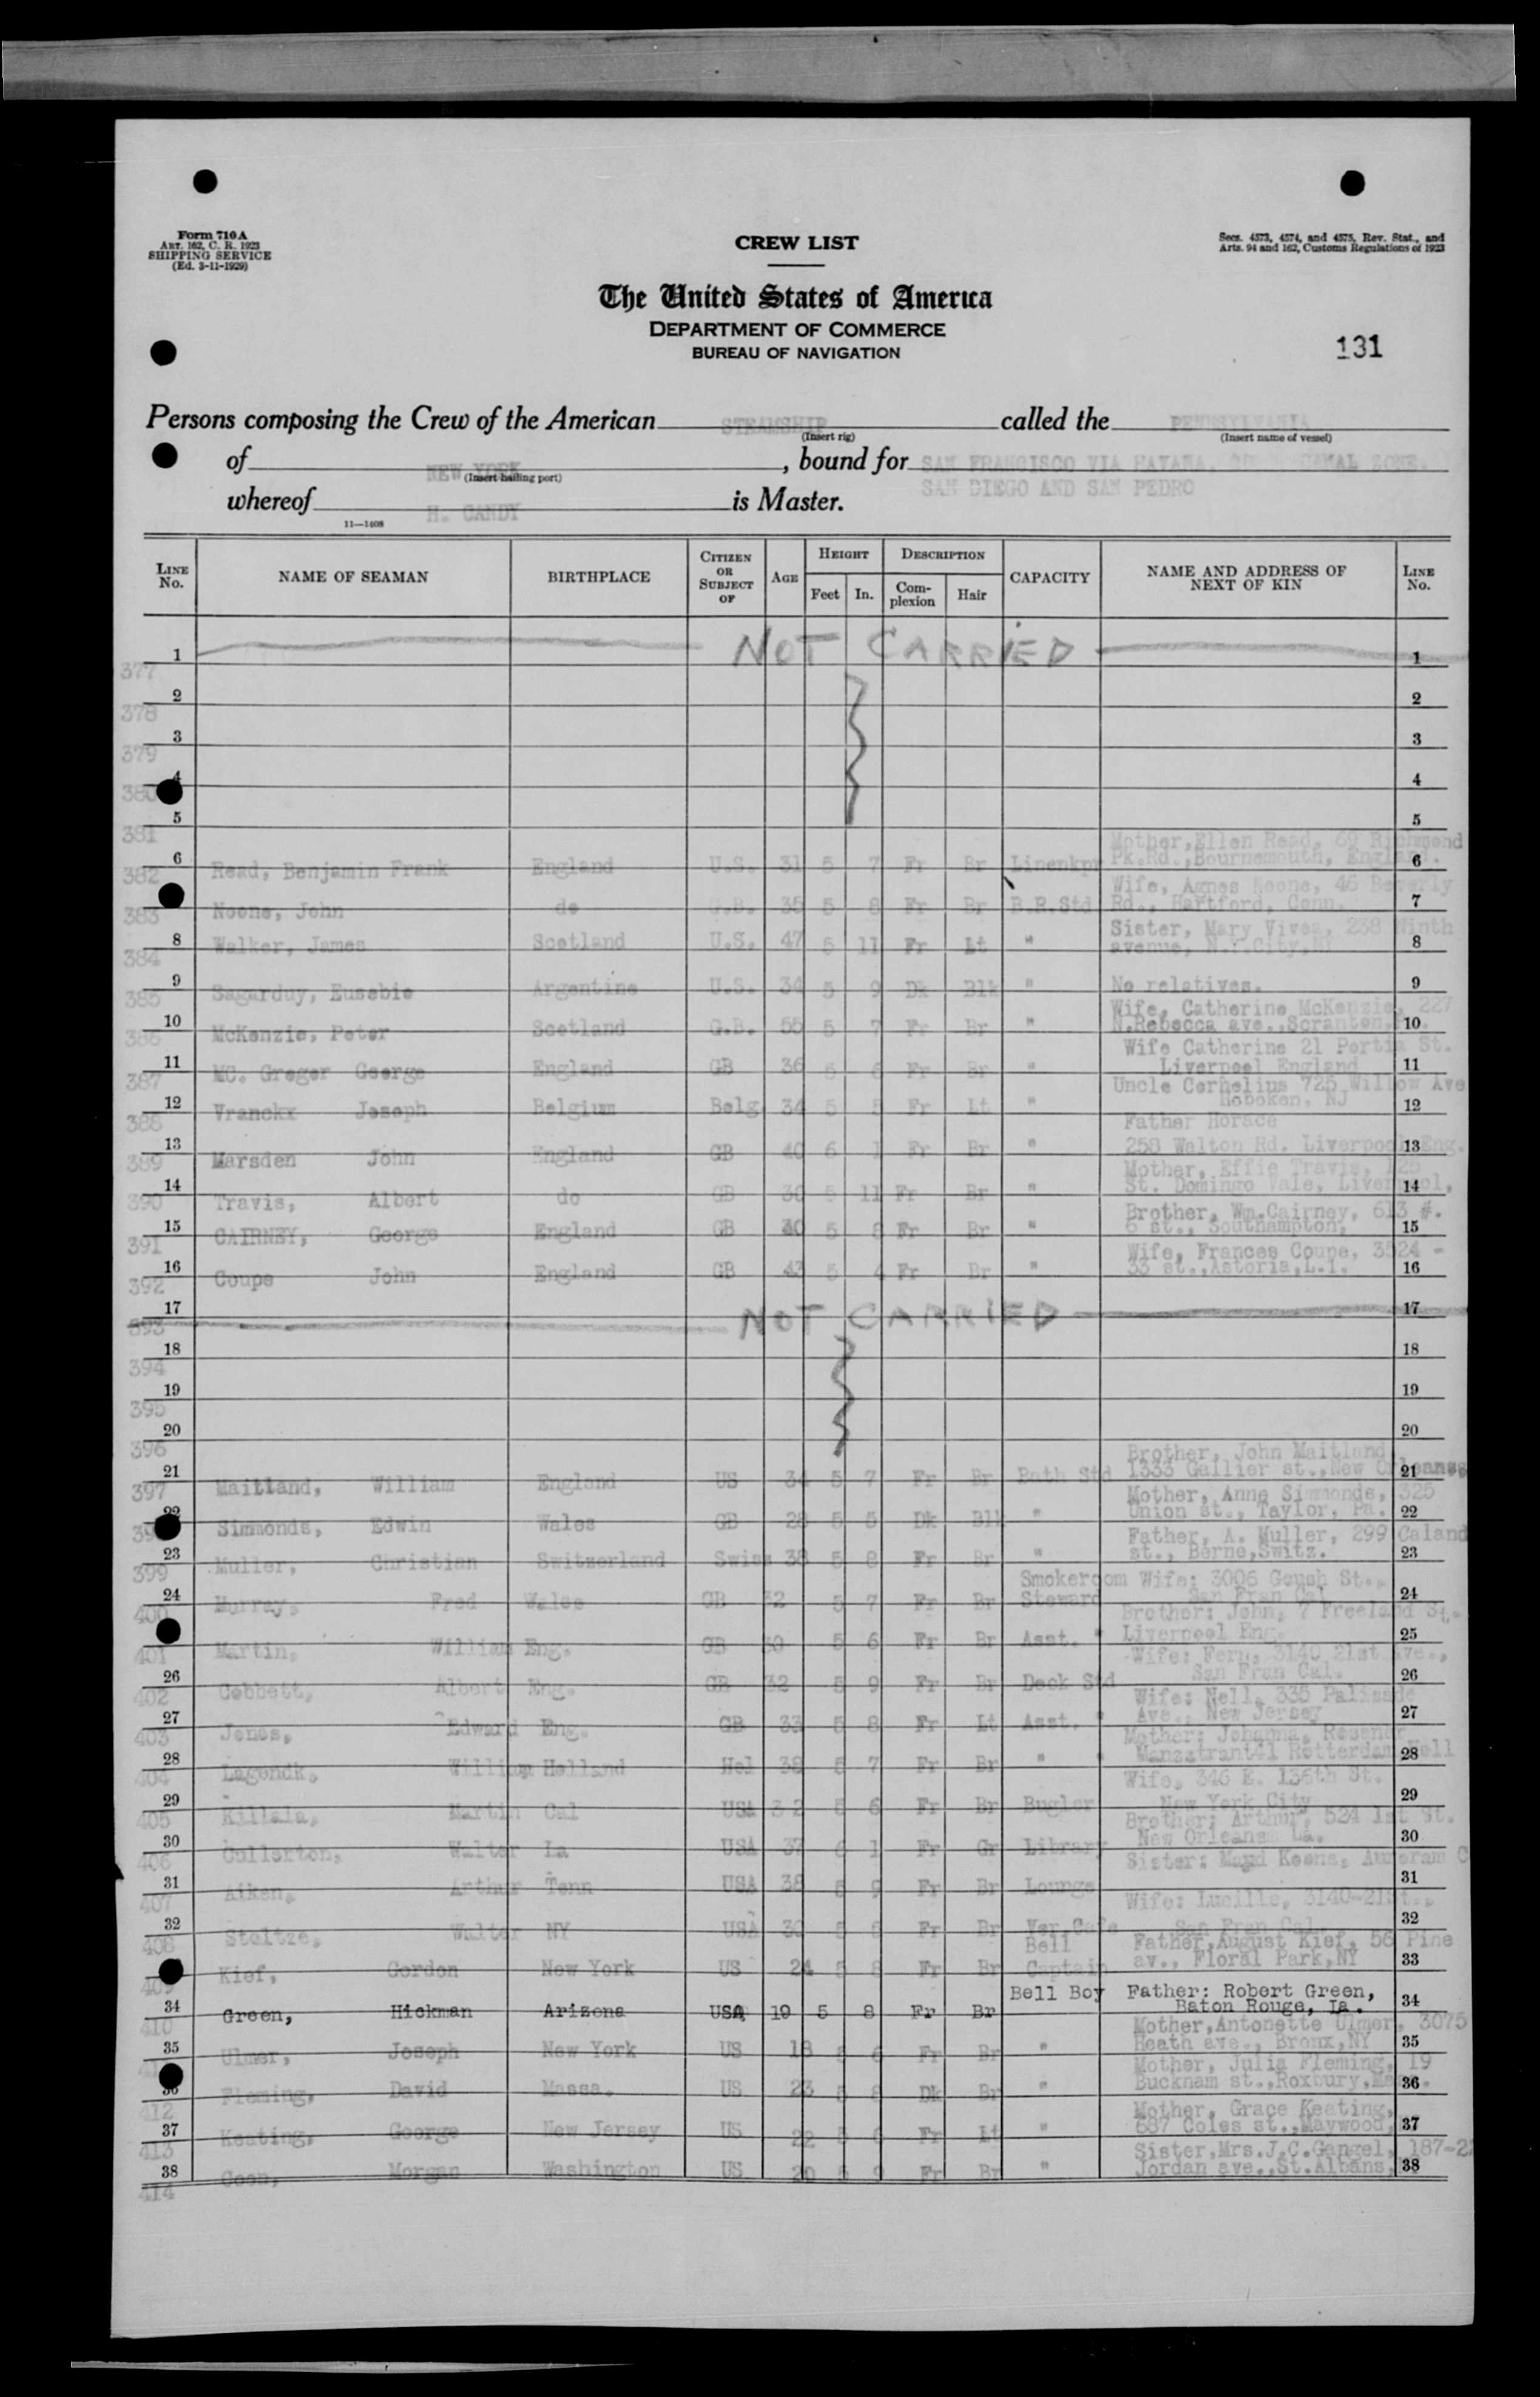 Form 710A
ART. 162, C. R. 1923
SHIPPING SERVICE
(Ed. 3-11-1929)
CREW LIST
Secs. 4573, 4574, and 4575, Rev. Stat., and
Arts. 94 and 162, Customs Regulations of 1923
The United States of America
DEPARTMENT OF COMMERCE
BUREAU OF NAVIGATION
131
Persons composing the Crew of the American STEAMSHIP called the PENNSYLVANIA
(Insert rig) (Insert name of vessel)
of NEW YORK, bound for SAN FRANCISCO VIA HAVANA, CANAL ZONE.
(Insert hailing port)
SAN DIEGO AND SAN PEDRO
whereof H. CANDY is Master.
11—1408
LINE No. NAME OF SEAMAN BIRTHPLACE CITIZEN OR SUBJECT OF AGE HEIGHT Feet In. DESCRIPTION Complexion Hair CAPACITY NAME AND ADDRESS OF NEXT OF KIN LINE No.
1 NOT CARRIED 1
377
2 2
378
3 3
379
4 4
380
5 5
381
Mother, Ellen Read, 69 Richmond
6 Read, Benjamin Frank England U.S. 31 5 7 Fr Br Linenkpr Pk.Rd., Bournemouth, England. 6
382
Wife, Agnes Noone, 46 Beverly
Noone, John do G.B. 35 5 8 Fr Br B.R.Std Rd., Hartford, Conn. 7
383
Sister, Mary Vives, 238 Ninth
8 Walker, James Scotland U.S. 47 5 11 Fr Lt " avenue, N.Y.City, 8
384
9 Sagarduy, Eusebio Argentine U.S. 34 5 9 Dk Blk " No relatives. 9
385
Wife, Catherine McKenzie, 227
10 McKenzie, Peter Scotland G.B. 55 5 7 Fr Br " N.Rebecca ave., Scranton, 10
386
Wife Catherine 21 Portia St.
11 MC. Gregor George England GB 36 5 6 Fr Br " Liverpool England 11
387
Uncle Cornelius 725 Willow Ave
12 Vranckx Joseph Belgium Belg 34 5 5 Fr Lt " Hoboken, NJ 12
388
Father Horace
13 Marsden John England GB 40 6 1 Fr Br " 258 Walton Rd. Liverpool Eng. 13
389
Mother, Effie Travis, 125
14 Travis, Albert do GB 30 5 11 Fr Br " St. Domingo Vale, Liverpool, 14
390
Brother, Wm.Cairney, 613 #.
15 CAIRNEY, George England GB 40 5 8 Fr Br " 6 st., Southampton, 15
391
Wife, Frances Coupe, 3524 -
16 Coupe John England GB 43 5 4 Fr Br " 33 st., Astoria, L.I. 16
392
17 NOT CARRIED 17
393
18 18
394
19 19
395
20 20
396
Brother, John Maitland
21 Maitland, William England US 34 5 7 Fr Br Bath Std 1333 Gallier st., New Orleans, 21
397
Mother, Anne Simmonds, 325
22 Simmonds, Edwin Wales GB 28 5 5 Dk Blk " Union st., Taylor, Pa. 22
Father, A. Muller, 299 Caland
23 Muller, Christian Switzerland Swiss 38 5 8 Fr Br " st., Berne, Switz. 23
399
Smokeroom Wife: 3006 Gough St.,
24 Murray, Fred Wales GB 32 5 7 Fr Br Steward San Fran Cal 24
400
Brother: John, 7 Freeland St.
Martin, William Eng. GB 30 5 6 Fr Br Asst. " Liverpool Eng. 25
401
Wife: Fern, 3140 21st Ave.,
26 Cobbett, Albert Eng. GB 32 5 9 Fr Br Deck Std San Fran Cal. 26
402
Wife: Nell, 335 Palisade
27 Jones, Edward Eng. GB 33 5 8 Fr Lt Asst. " Ave., New Jersey 27
403
Mother: Johanna,
28 Lagendk, William Holland Hol 38 5 7 Fr Br " " Rotterdam Holl 28
404
Wife, 346 E. 136th St.
29 Killala, Martin Cal USA 32 5 6 Fr Br Bugler New York City 29
405
Brother: Arthur, 524 1st St.
30 Collerton, Walter La USA 37 6 1 Fr Gr Library New Orleans La. 30
406
Sister: Maud Keene,
31 Aiken, Arthur Tenn USA 38 5 9 Fr Br Lounge 31
407
Wife: Lucille, 3140-21st.,
32 Stoltze, Walter NY USA 30 5 5 Fr Br Ver.Cafe San Fran Cal. 32
408
Bell Father, August Kief, 56 Pine
Kief, Gordon New York US 24 5 8 Fr Br Captain av., Floral Park, NY 33
409
Bell Boy Father: Robert Green,
34 Green, Hickman Arizona USA 19 5 8 Fr Br Baton Rouge, La. 34
410
Mother, Antonette Ulmer, 3075
35 Ulmer, Joseph New York US 18 5 6 Fr Br " Heath ave., Bronx, NY 35
Mother, Julia Fleming, 19
36 Fleming, David Massa. US 23 5 8 Dk Br " Bucknam st., Roxbury, 36
412
Mother, Grace Keating,
37 Keating, George New Jersey US 22 5 6 Fr Lt " 687 Coles st., Maywood, 37
413
Sister, Mrs.J.C.Gangel, 187-22
38 Coon, Morgan Washington US 20 5 9 Fr Br " Jordan ave., St.Albans, 38
414